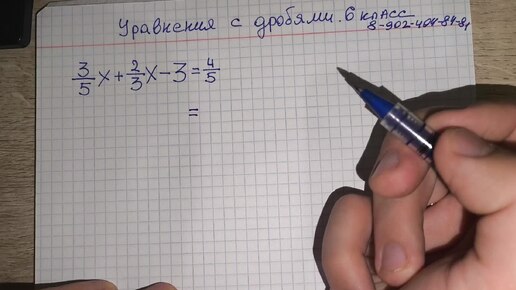 Уравнения с дробями. 6 класс
8-902-404-84-81
3/5 x + 2/3 x - 3 = 4/5
=